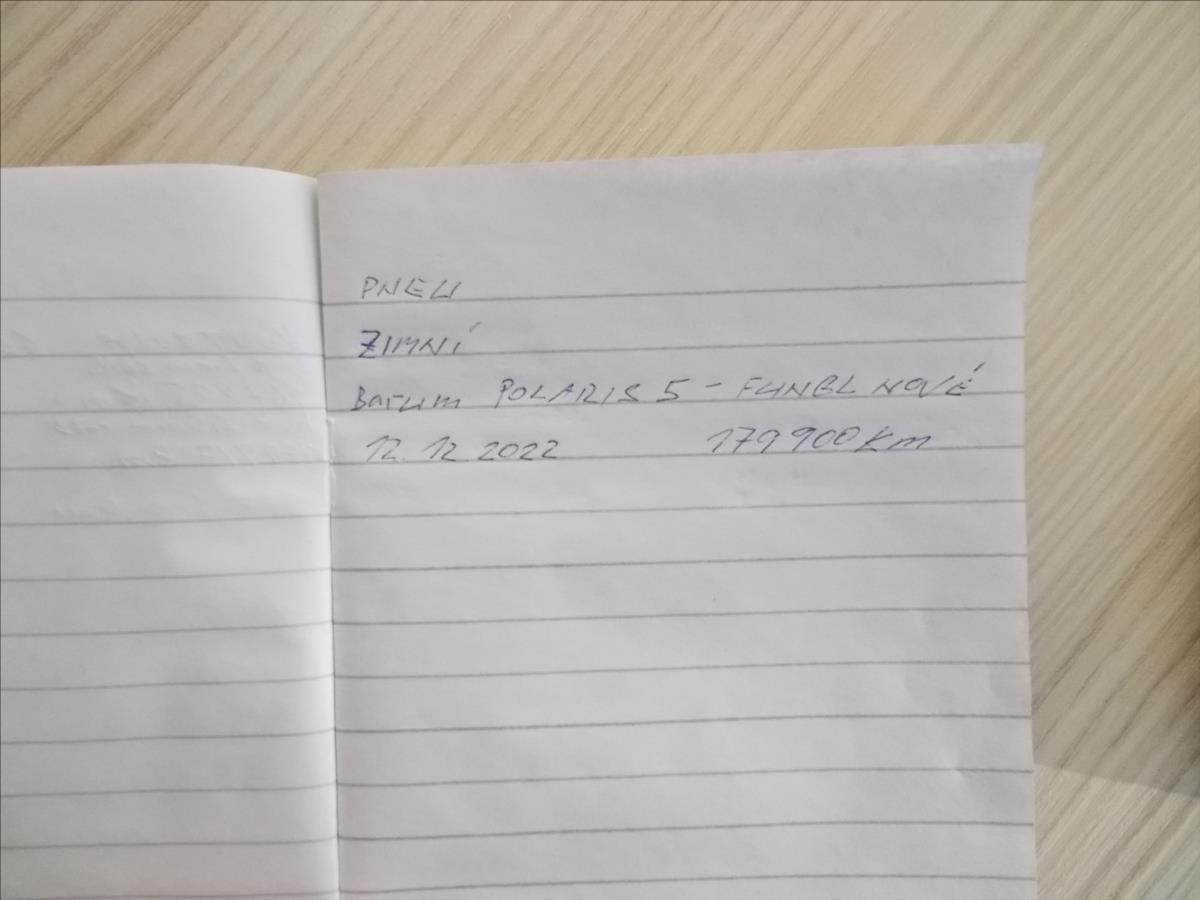 PNEU
ZIMNÍ
Barum POLARIS 5 - FUNGL NOVÉ
12. 12. 2022 179 900 Km